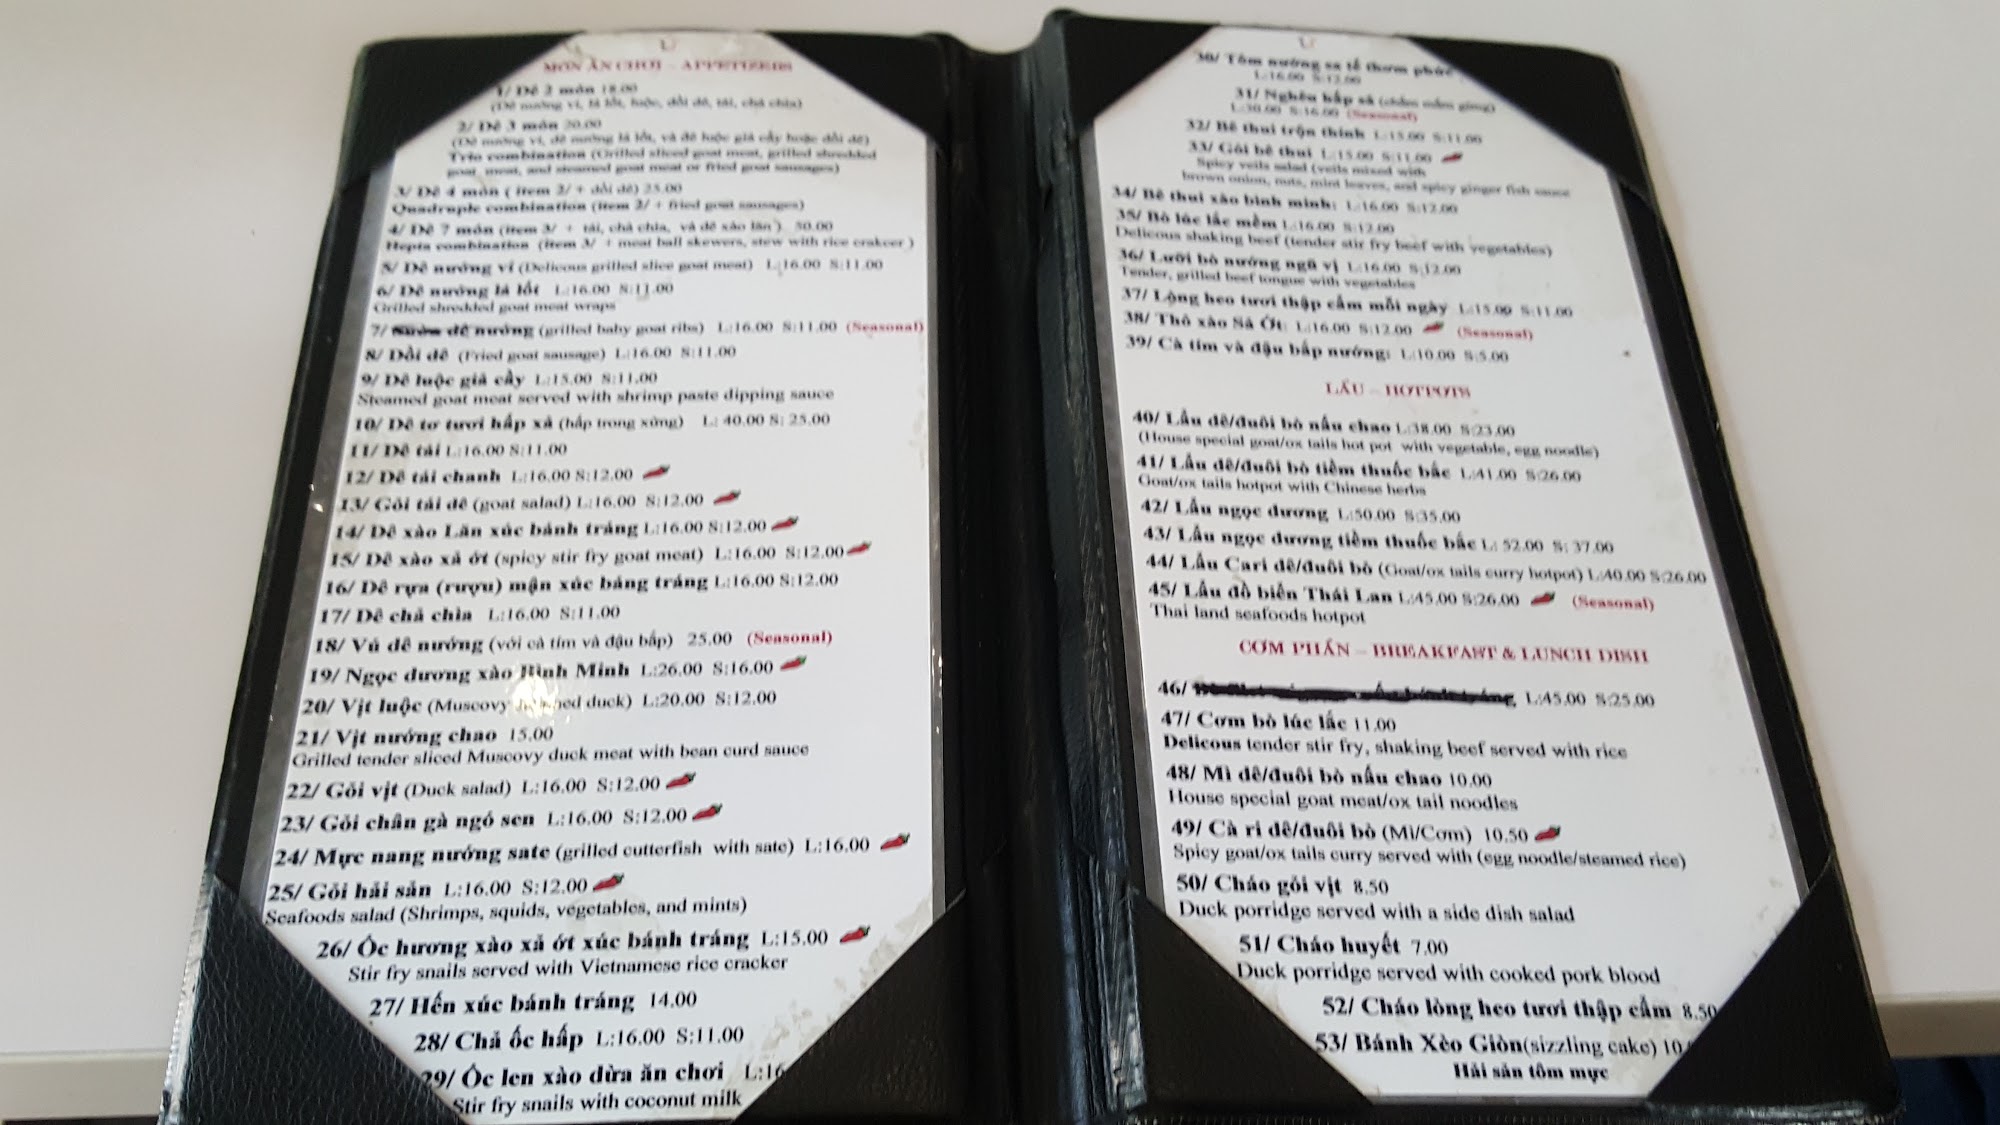 MÓN ĂN CHƠI – APPETIZERS
1/ Dê 2 món 18.00
(Dê nướng vỉ, lá lốt, luộc, dồi dê, tái, chả chìa)
2/ Dê 3 món 20.00
(Dê nướng vỉ, dê nướng lá lốt, và dê luộc giả cầy hoặc dồi dê)
Trio combination (Grilled sliced goat meat, grilled shredded
goat, meat, and steamed goat meat or fried goat sausages)
3/ Dê 4 món ( item 2/ + dồi dê) 25.00
Quadruple combination (item 2/ + fried goat sausages)
4/ Dê 7 món (item 3/ + tái, chả chìa, và dê xào lăn ) 50.00
Hepta combination (item 3/ + meat ball skewers, stew with rice crakcer )
5/ Dê nướng vỉ (Delicous grilled slice goat meat) L:16.00 S:11.00
6/ Dê nướng lá lốt L:16.00 S:11.00
Grilled shredded goat meat wraps
7/ Sườn dê nướng (grilled baby goat ribs) L:16.00 S:11.00 (Seasonal)
8/ Dồi dê (Fried goat sausage) L:16.00 S:11.00
9/ Dê luộc giả cầy L:15.00 S:11.00
Steamed goat meat served with shrimp paste dipping sauce
10/ Dê tơ tươi hấp xả (hấp trong xửng) L: 40.00 S: 25.00
11/ Dê tái L:16.00 S:11.00
12/ Dê tái chanh L:16.00 S:12.00
13/ Gỏi tái dê (goat salad) L:16.00 S:12.00
14/ Dê xào Lăn xúc bánh tráng L:16.00 S:12.00
15/ Dê xào xả ớt (spicy stir fry goat meat) L:16.00 S:12.00
16/ Dê rựa (rượu) mận xúc báng tráng L:16.00 S:12.00
17/ Dê chả chìa L:16.00 S:11.00
18/ Vú dê nướng (với cà tím và đậu bắp) 25.00 (Seasonal)
19/ Ngọc dương xào Bình Minh L:26.00 S:16.00
20/ Vịt luộc (Muscovy duck) L:20.00 S:12.00
21/ Vịt nướng chao 15.00
Grilled tender sliced Muscovy duck meat with bean curd sauce
22/ Gỏi vịt (Duck salad) L:16.00 S:12.00
23/ Gỏi chân gà ngó sen L:16.00 S:12.00
24/ Mực nang nướng sate (grilled cutterfish with sate) L:16.00
25/ Gỏi hải sản L:16.00 S:12.00
Seafoods salad (Shrimps, squids, vegetables, and mints)
26/ Ốc hương xào xả ớt xúc bánh tráng L:15.00
Stir fry snails served with Vietnamese rice cracker
27/ Hến xúc bánh tráng 14.00
28/ Chả ốc hấp L:16.00 S:11.00
29/ Ốc len xào dừa ăn chơi L:16
Stir fry snails with coconut milk
30/ Tôm nướng sa tế thơm phức
L:16.00 S:12.00
31/ Nghêu hấp sả (chấm mắm gừng)
L:30.00 S:16.00 (Seasonal)
32/ Bê thui trộn thính L:15.00 S:11.00
33/ Gỏi bê thui L:15.00 S:11.00
Spicy veils salad (veils mixed with
brown onion, nuts, mint leaves, and spicy ginger fish sauce
34/ Bê thui xào bình minh: L:16.00 S:12.00
35/ Bò lúc lắc mềm L:16.00 S:12.00
Delicous shaking beef (tender stir fry beef with vegetables)
36/ Lưỡi bò nướng ngũ vị L:16.00 S:12.00
Tender, grilled beef tongue with vegetables
37/ Lòng heo tươi thập cẩm mỗi ngày L:15.00 S:11.00
38/ Thỏ xào Sả Ớt: L:16.00 S:12.00 (Seasonal)
39/ Cà tím và đậu bắp nướng: L:10.00 S:5.00
LẨU – HOTPOTS
40/ Lẩu dê/đuôi bò nấu chao L:38.00 S:23.00
(House special goat/ox tails hot pot with vegetable, egg noodle)
41/ Lẩu dê/đuôi bò tiềm thuốc bắc L:41.00 S:26.00
Goat/ox tails hotpot with Chinese herbs
42/ Lẩu ngọc dương L:50.00 S:35.00
43/ Lẩu ngọc dương tiềm thuốc bắc L: 52.00 S: 37.00
44/ Lẩu Cari dê/đuôi bò (Goat/ox tails curry hotpot) L:40.00 S:26.00
45/ Lẩu đồ biển Thái Lan L:45.00 S:26.00 (Seasonal)
Thai land seafoods hotpot
CƠM PHẦN – BREAKFAST & LUNCH DISH
46/ L:45.00 S:25.00
47/ Cơm bò lúc lắc 11.00
Delicous tender stir fry, shaking beef served with rice
48/ Mì dê/đuôi bò nấu chao 10.00
House special goat meat/ox tail noodles
49/ Cà ri dê/đuôi bò (Mì/Cơm) 10.50
Spicy goat/ox tails curry served with (egg noodle/steamed rice)
50/ Cháo gỏi vịt 8.50
Duck porridge served with a side dish salad
51/ Cháo huyết 7.00
Duck porridge served with cooked pork blood
52/ Cháo lòng heo tươi thập cẩm 8.50
53/ Bánh Xèo Giòn(sizzling cake) 10.
Hải sản tôm mực